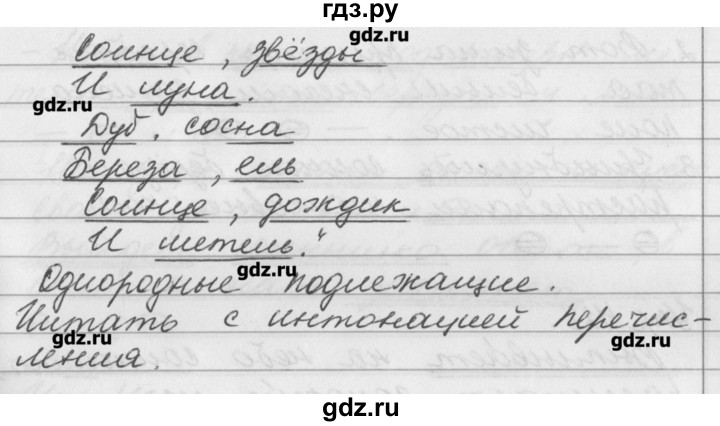 гдз.ру
Солнце, звёзды
gdz.ru
И луна.
gdz.ru
Дуб, сосна
gdz.ru
Береза, ель
Солнце, дождик
И метель."
gdz.ru
Однородные подлежащие.
Читать с интонацией перечис-
gdz.ru
ления.
gdz.ru